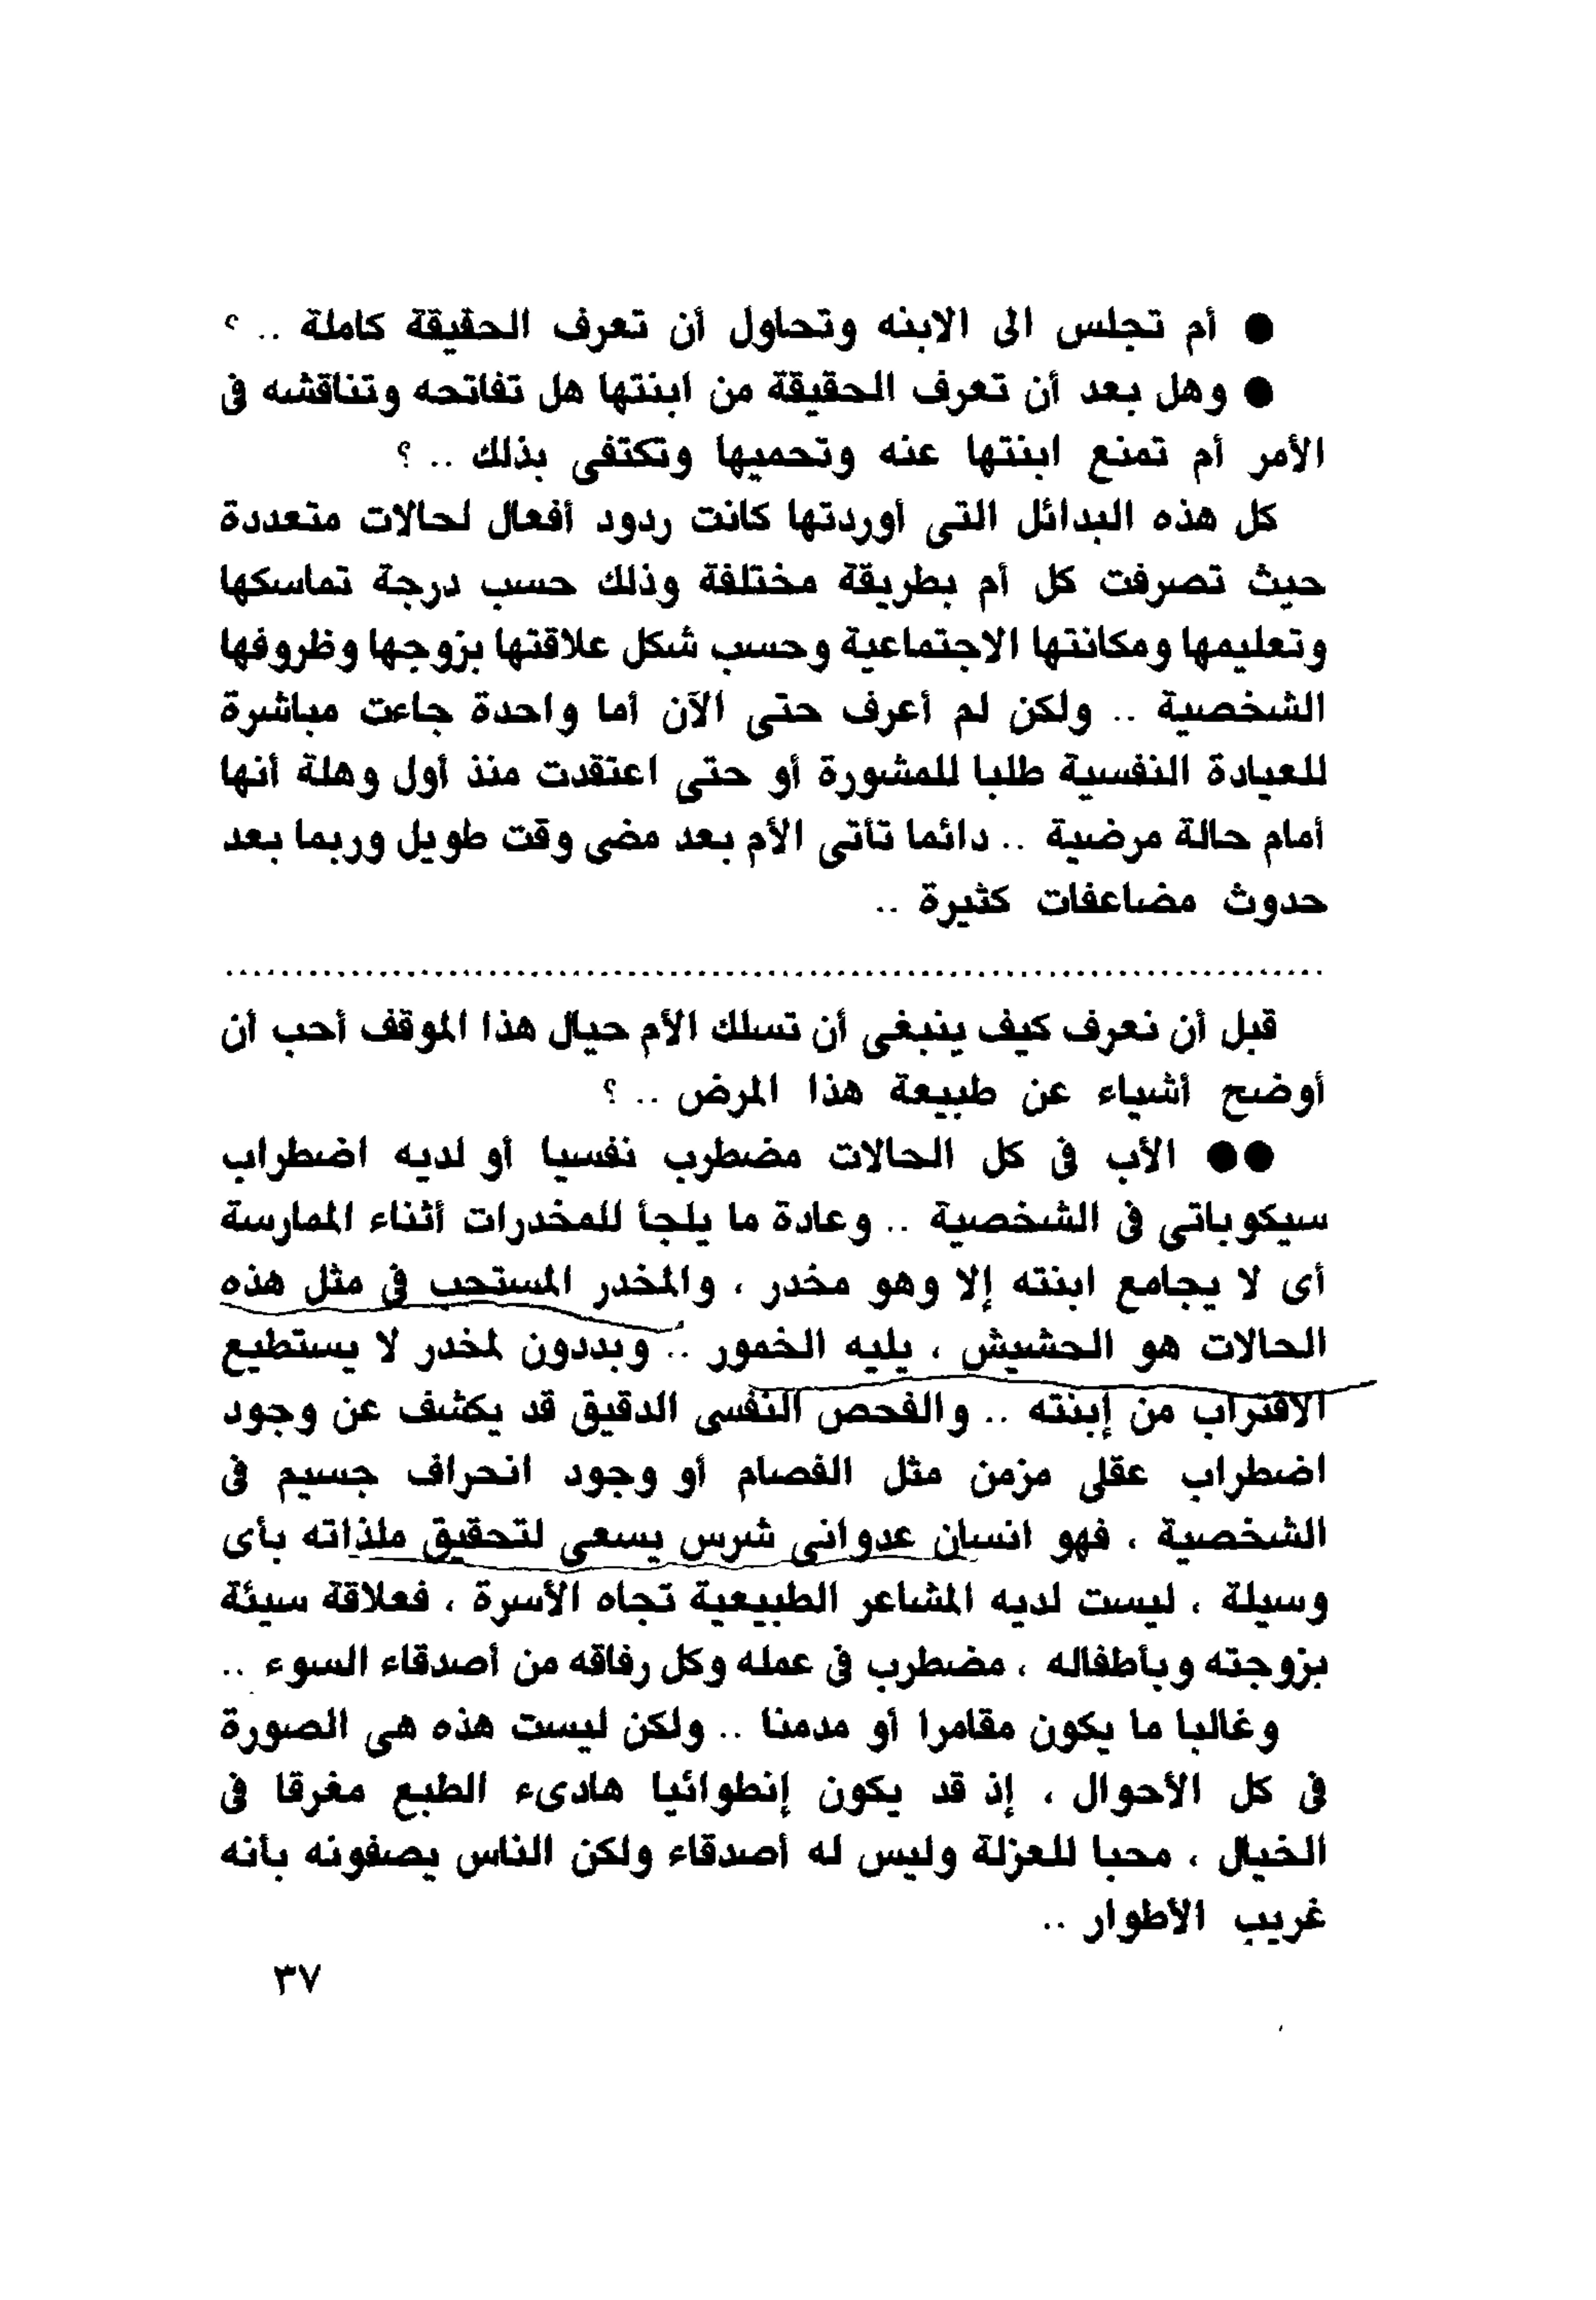 ● أم تجلس الى الابنه وتحاول أن تعرف الحقيقة كاملة .. ؟
● وهل بعد أن تعرف الحقيقة من ابنتها هل تفاتحه وتناقشه فى
الأمر أم تمنع ابنتها عنه وتحميها وتكتفى بذلك .. ؟
كل هذه البدائل التى أوردتها كانت ردود أفعال لحالات متعددة
حيث تصرفت كل أم بطريقة مختلفة وذلك حسب درجة تماسكها
وتعليمها ومكانتها الاجتماعية وحسب شكل علاقتها بزوجها وظروفها
الشخصية .. ولكن لم أعرف حتى الآن أما واحدة جاءت مباشرة
للعيادة النفسية طلبا للمشورة أو حتى اعتقدت منذ أول وهلة أنها
أمام حالة مرضية .. دائما تأتى الأم بعد مضى وقت طويل وربما بعد
حدوث مضاعفات كثيرة ..
................................................................................
قبل أن نعرف كيف ينبغى أن تسلك الأم حيال هذا الموقف أحب أن
أوضح أشياء عن طبيعة هذا المرض .. ؟
●● الأب فى كل الحالات مضطرب نفسيا أو لديه اضطراب
سيكوباتى فى الشخصية .. وعادة ما يلجأ للمخدرات أثناء الممارسة
أى لا يجامع ابنته إلا وهو مخدر ، والمخدر المستحب فى مثل هذه
الحالات هو الحشيش ، يليه الخمور .. وبددون لمخدر لا يستطيع
الاقتراب من إبنته .. والفحص النفسى الدقيق قد يكشف عن وجود
اضطراب عقلى مزمن مثل الفصام أو وجود انحراف جسيم فى
الشخصية ، فهو انسان عدوانى شرس يسعى لتحقيق ملذاته بأى
وسيلة ، ليست لديه المشاعر الطبيعية تجاه الأسرة ، فعلاقة سيئة
بزوجته وبأطفاله ، مضطرب فى عمله وكل رفاقه من أصدقاء السوء ..
وغالبا ما يكون مقامرا أو مدمنا .. ولكن ليست هذه هى الصورة
فى كل الأحوال ، إذ قد يكون إنطوائيا هادىء الطبع مغرقا فى
الخيال ، محبا للعزلة وليس له أصدقاء ولكن الناس يصفونه بأنه
غريب الأطوار ..
٣٧